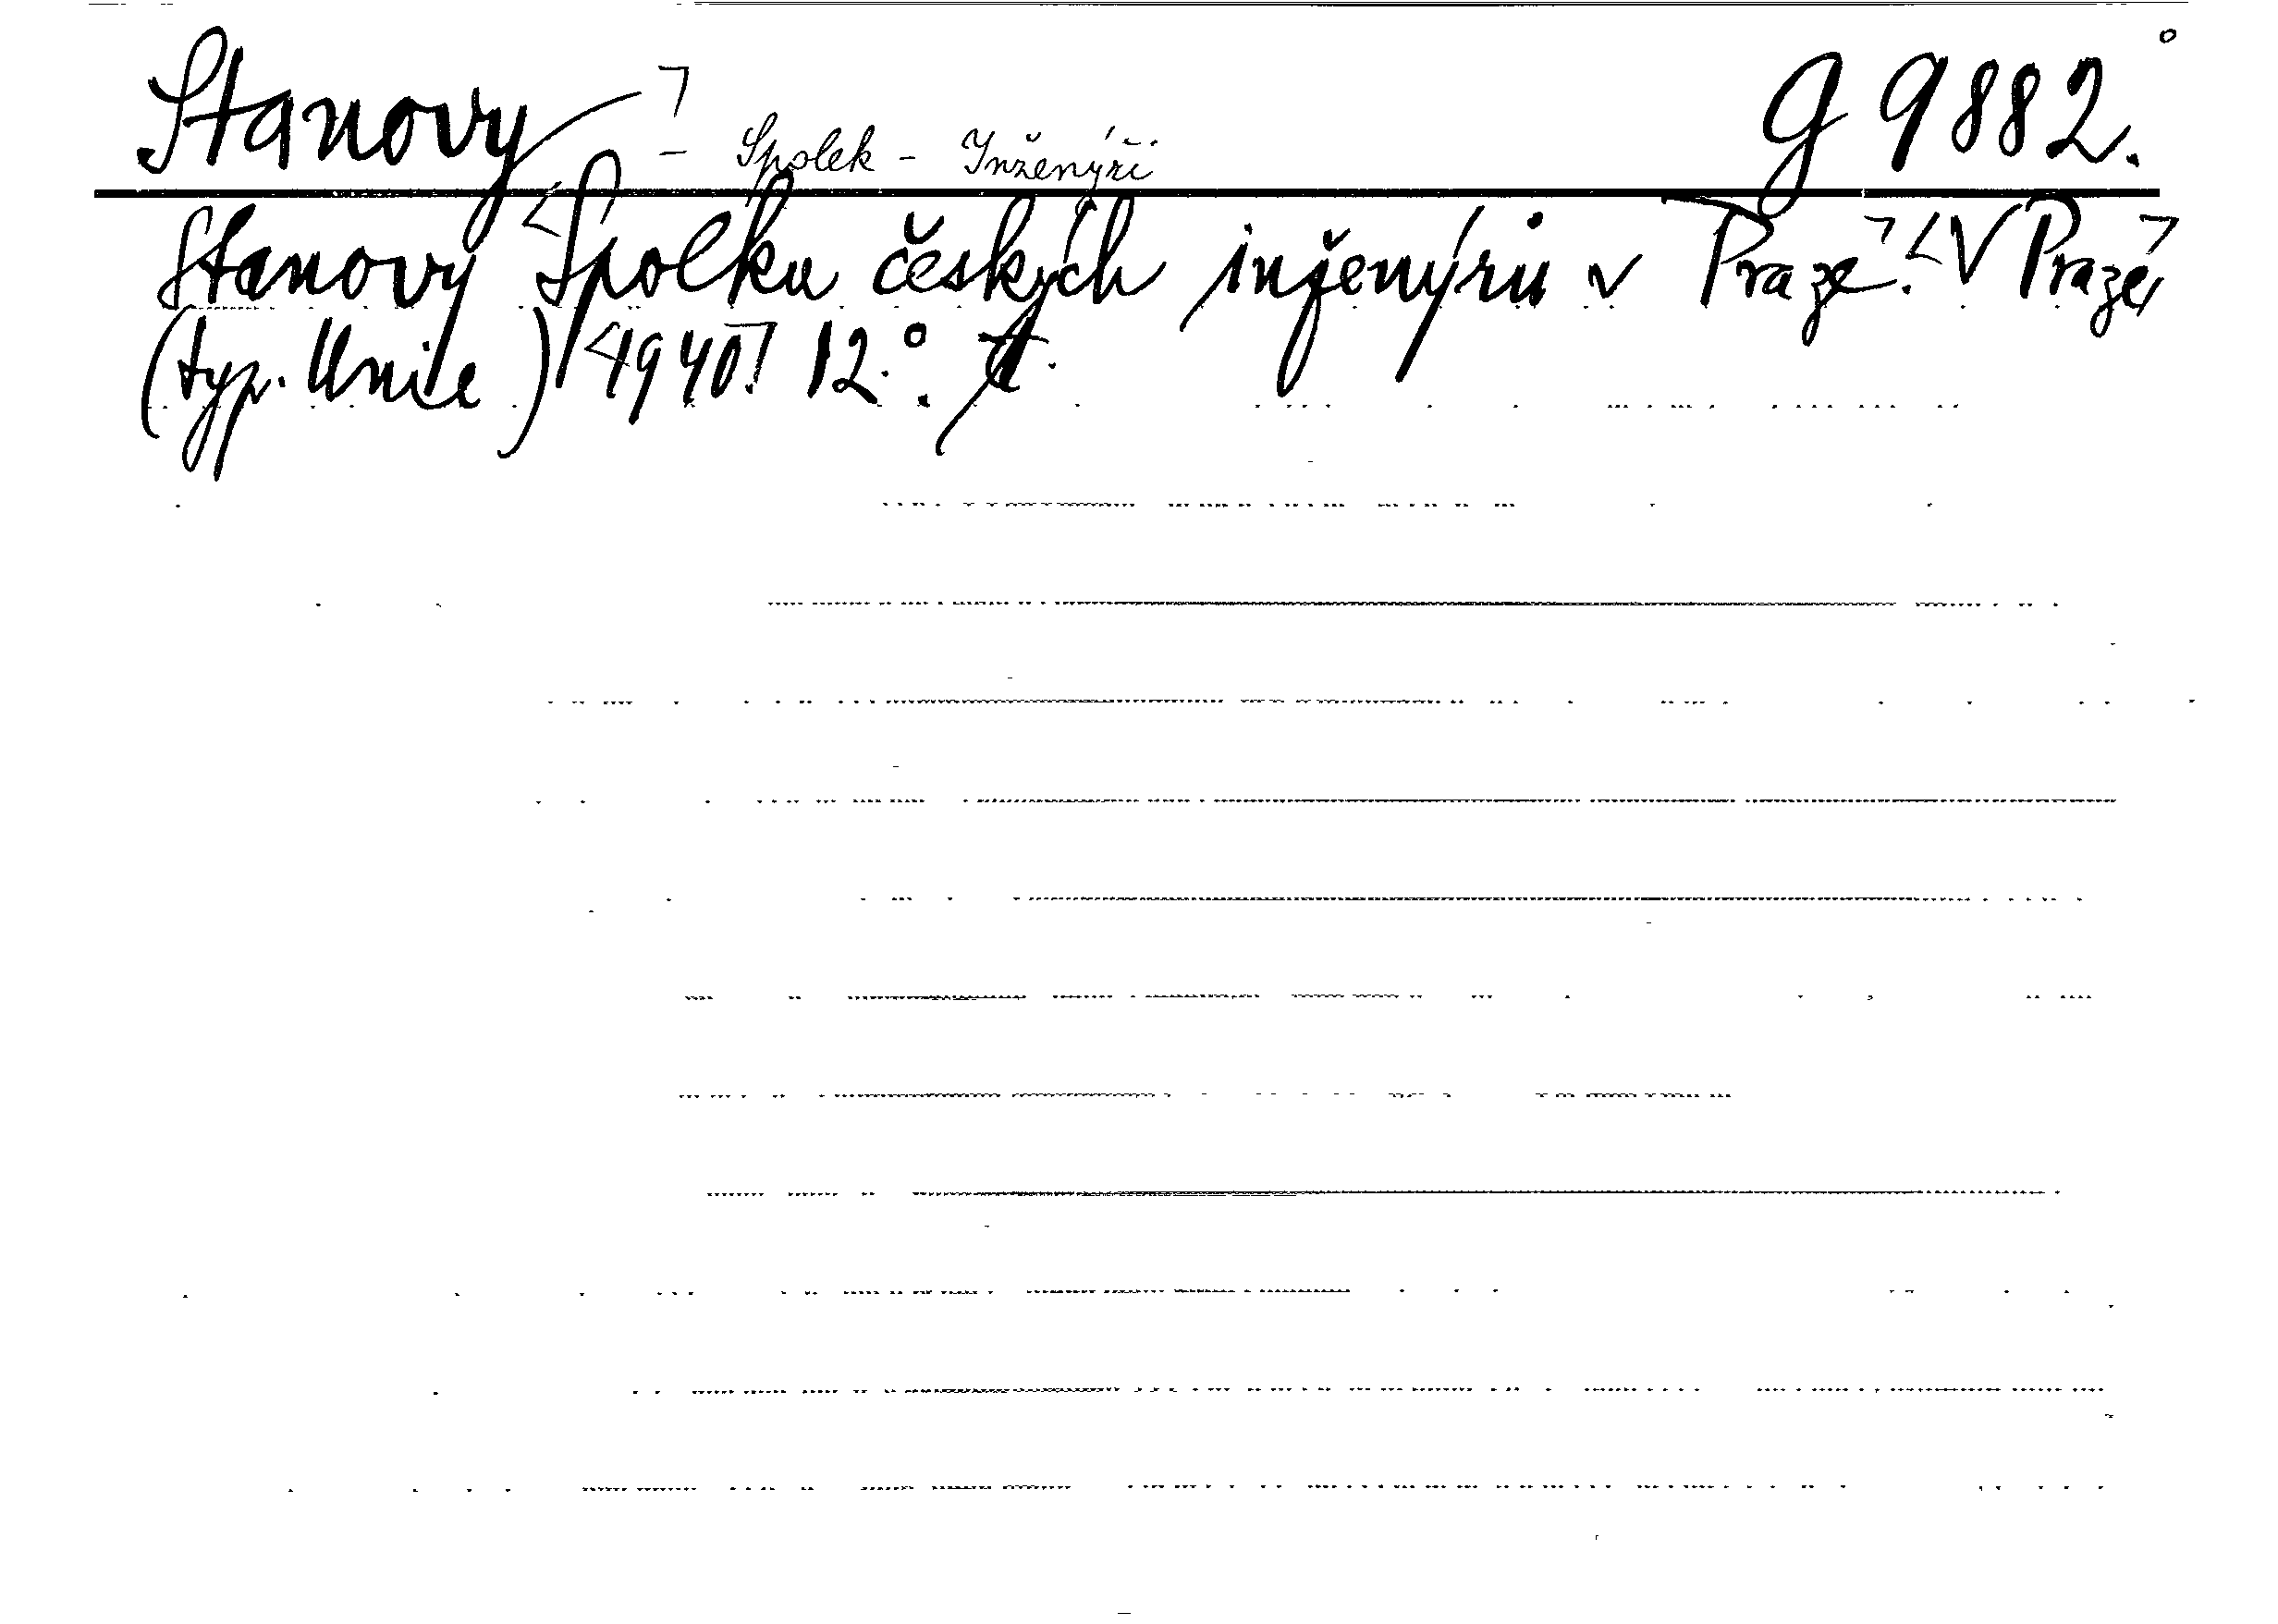 Stanovy - Spolek - Inženýři G 9882.
Stanovy Spolku českých inženýrů v Praze. V Praze,
(typ. Unie) 1940. 12.°.